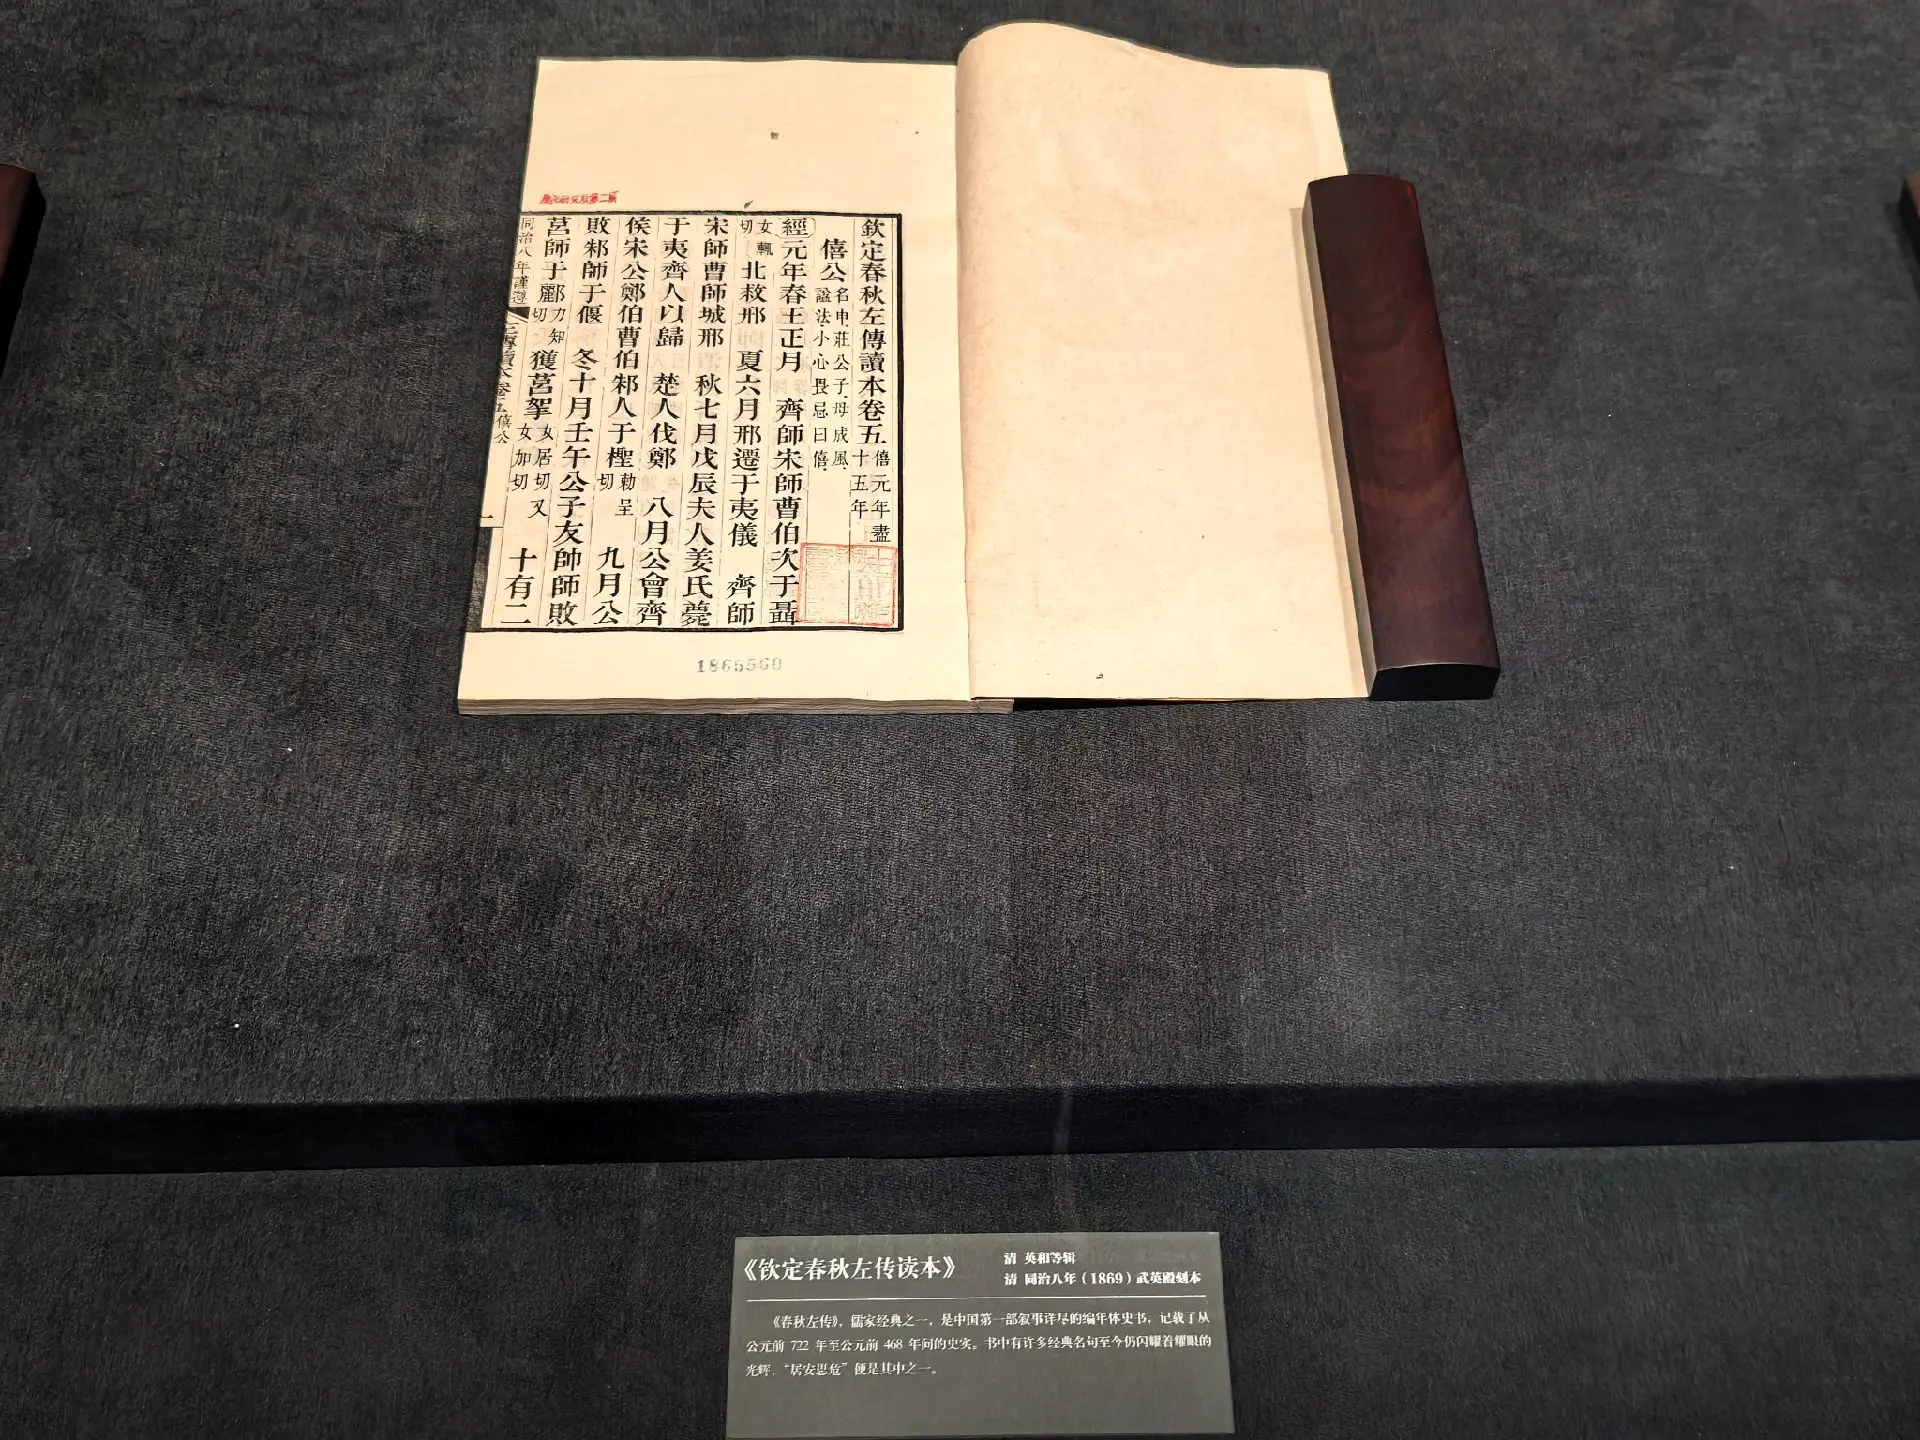 欽定春秋左傳讀本卷五 僖元年盡十五年
僖公 名申莊公子母成風諡法小心畏忌曰僖
經元年春王正月 齊師宋師曹伯次于聶
女輒切北救邢 夏六月邢遷于夷儀 齊師
宋師曹師城邢 秋七月戊辰夫人姜氏薨
于夷齊人以歸 楚人伐鄭 八月公會齊
侯宋公鄭伯曹伯邾人于檉勅呈切 九月公
敗邾師于偃 冬十月壬午公子友帥師敗
莒師于酈力知切獲莒挐女居切又女加切 十有二
同治八年謹遵
左傳讀本卷五僖公
一
1865560
《钦定春秋左传读本》
清 英和等辑
清 同治八年（1869）武英殿刻本
《春秋左传》，儒家经典之一，是中国第一部叙事详尽的编年体史书，记载了从
公元前 722 年至公元前 468 年间的史实。书中有许多经典名句至今仍闪耀着耀眼的
光辉，“居安思危”便是其中之一。